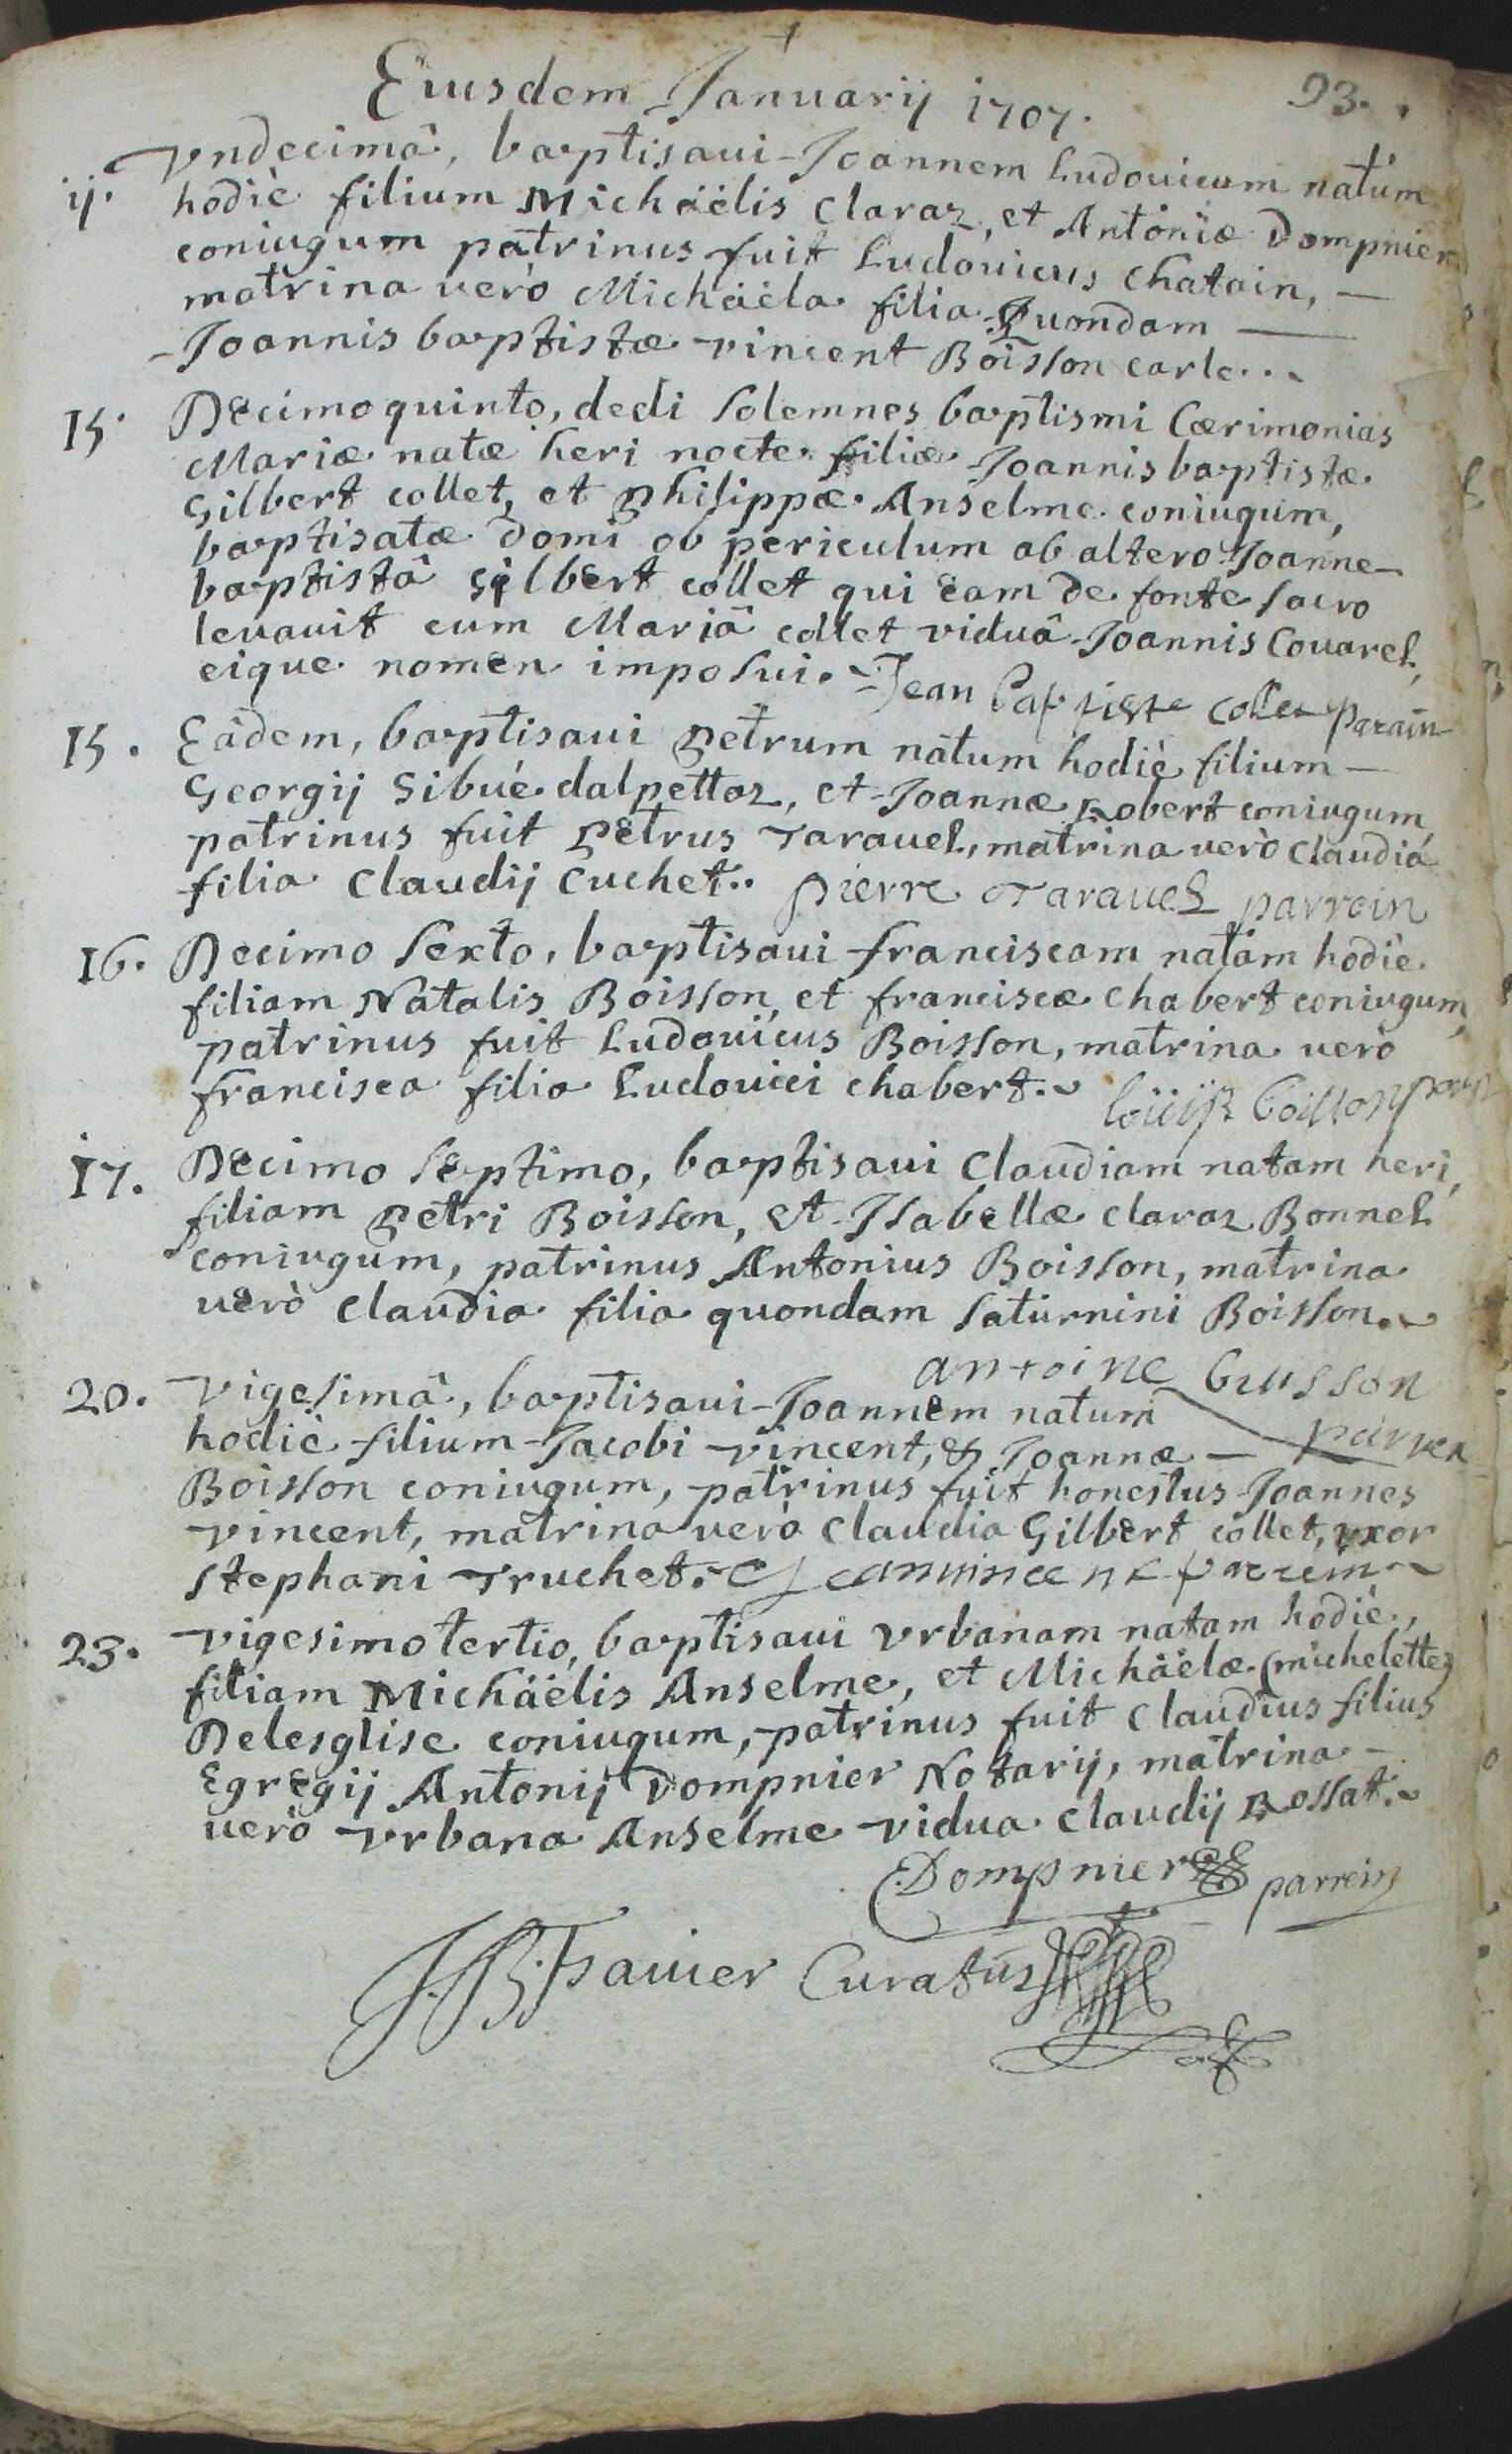 Eiusdem Januarij 1707. 93.
ij. Vndecimâ, baptisaui Joannem Ludouicum natum
hodiè filium Michäelis Claraz, et Antoniæ Dompnier
coniugum patrinus fuit Ludouicus Chatain, —
matrina uerò Michäela filia Quondam —
Joannis baptistæ Vincent Boisson carle...
15. Decimoquinto, dedi solemnes baptismi Cærimonias
Mariæ natæ heri nocte filiæ Joannis baptistæ
Gilbert collet, et Philippæ Anselme coniugum,
baptisatæ domi ob periculum ab altero Joanne
baptistâ Gilbert collet qui eam de fonte sacro
leuauit cum Mariâ collet viduâ Joannis Couarel,
eique nomen imposui. Jean Baptiste Collet parain
15. Eâdem, baptisaui Petrum natum hodiè filium —
Georgij Sibué dalpettaz, et Joannæ Robert coniugum,
patrinus fuit Petrus Tarauel, matrina uerò Claudia
filia Claudij Cuchet. pierre Tarauel parrein
16. Decimo sexto, baptisaui franciscam natam hodiè
filiam Natalis Boisson, et franciscæ Chabert coniugum,
patrinus fuit Ludouicus Boisson, matrina uerò
francisca filia Ludouici Chabert. boisson
17. Decimo septimo, baptisaui Claudiam natam heri,
filiam Petri Boisson, et Isabellæ Claraz Bonnel
coniugum, patrinus Antonius Boisson, matrina
uerò Claudia filia quondam Saturnini Boisson.
antoine buisson
20. Vigesimâ, baptisaui Joannem natum
hodiè filium Jacobi Vincent, & Joannæ —
Boisson coniugum, patrinus fuit honestus Joannes
Vincent, matrina uerò Claudia Gilbert collet, vxor
Stephani Truchet. Jean vincent parrein
23. Vigesimotertio, baptisaui Vrbanam natam hodiè,
filiam Michäelis Anselme, et Michäelæ (michelette)
Delesglise coniugum, patrinus fuit Claudius filius
Egregij Antonij Dompnier Notarij, matrina —
uerò Vrbana Anselme vidua Claudij Rossat.
Dompnier parrein
JB. Curatus